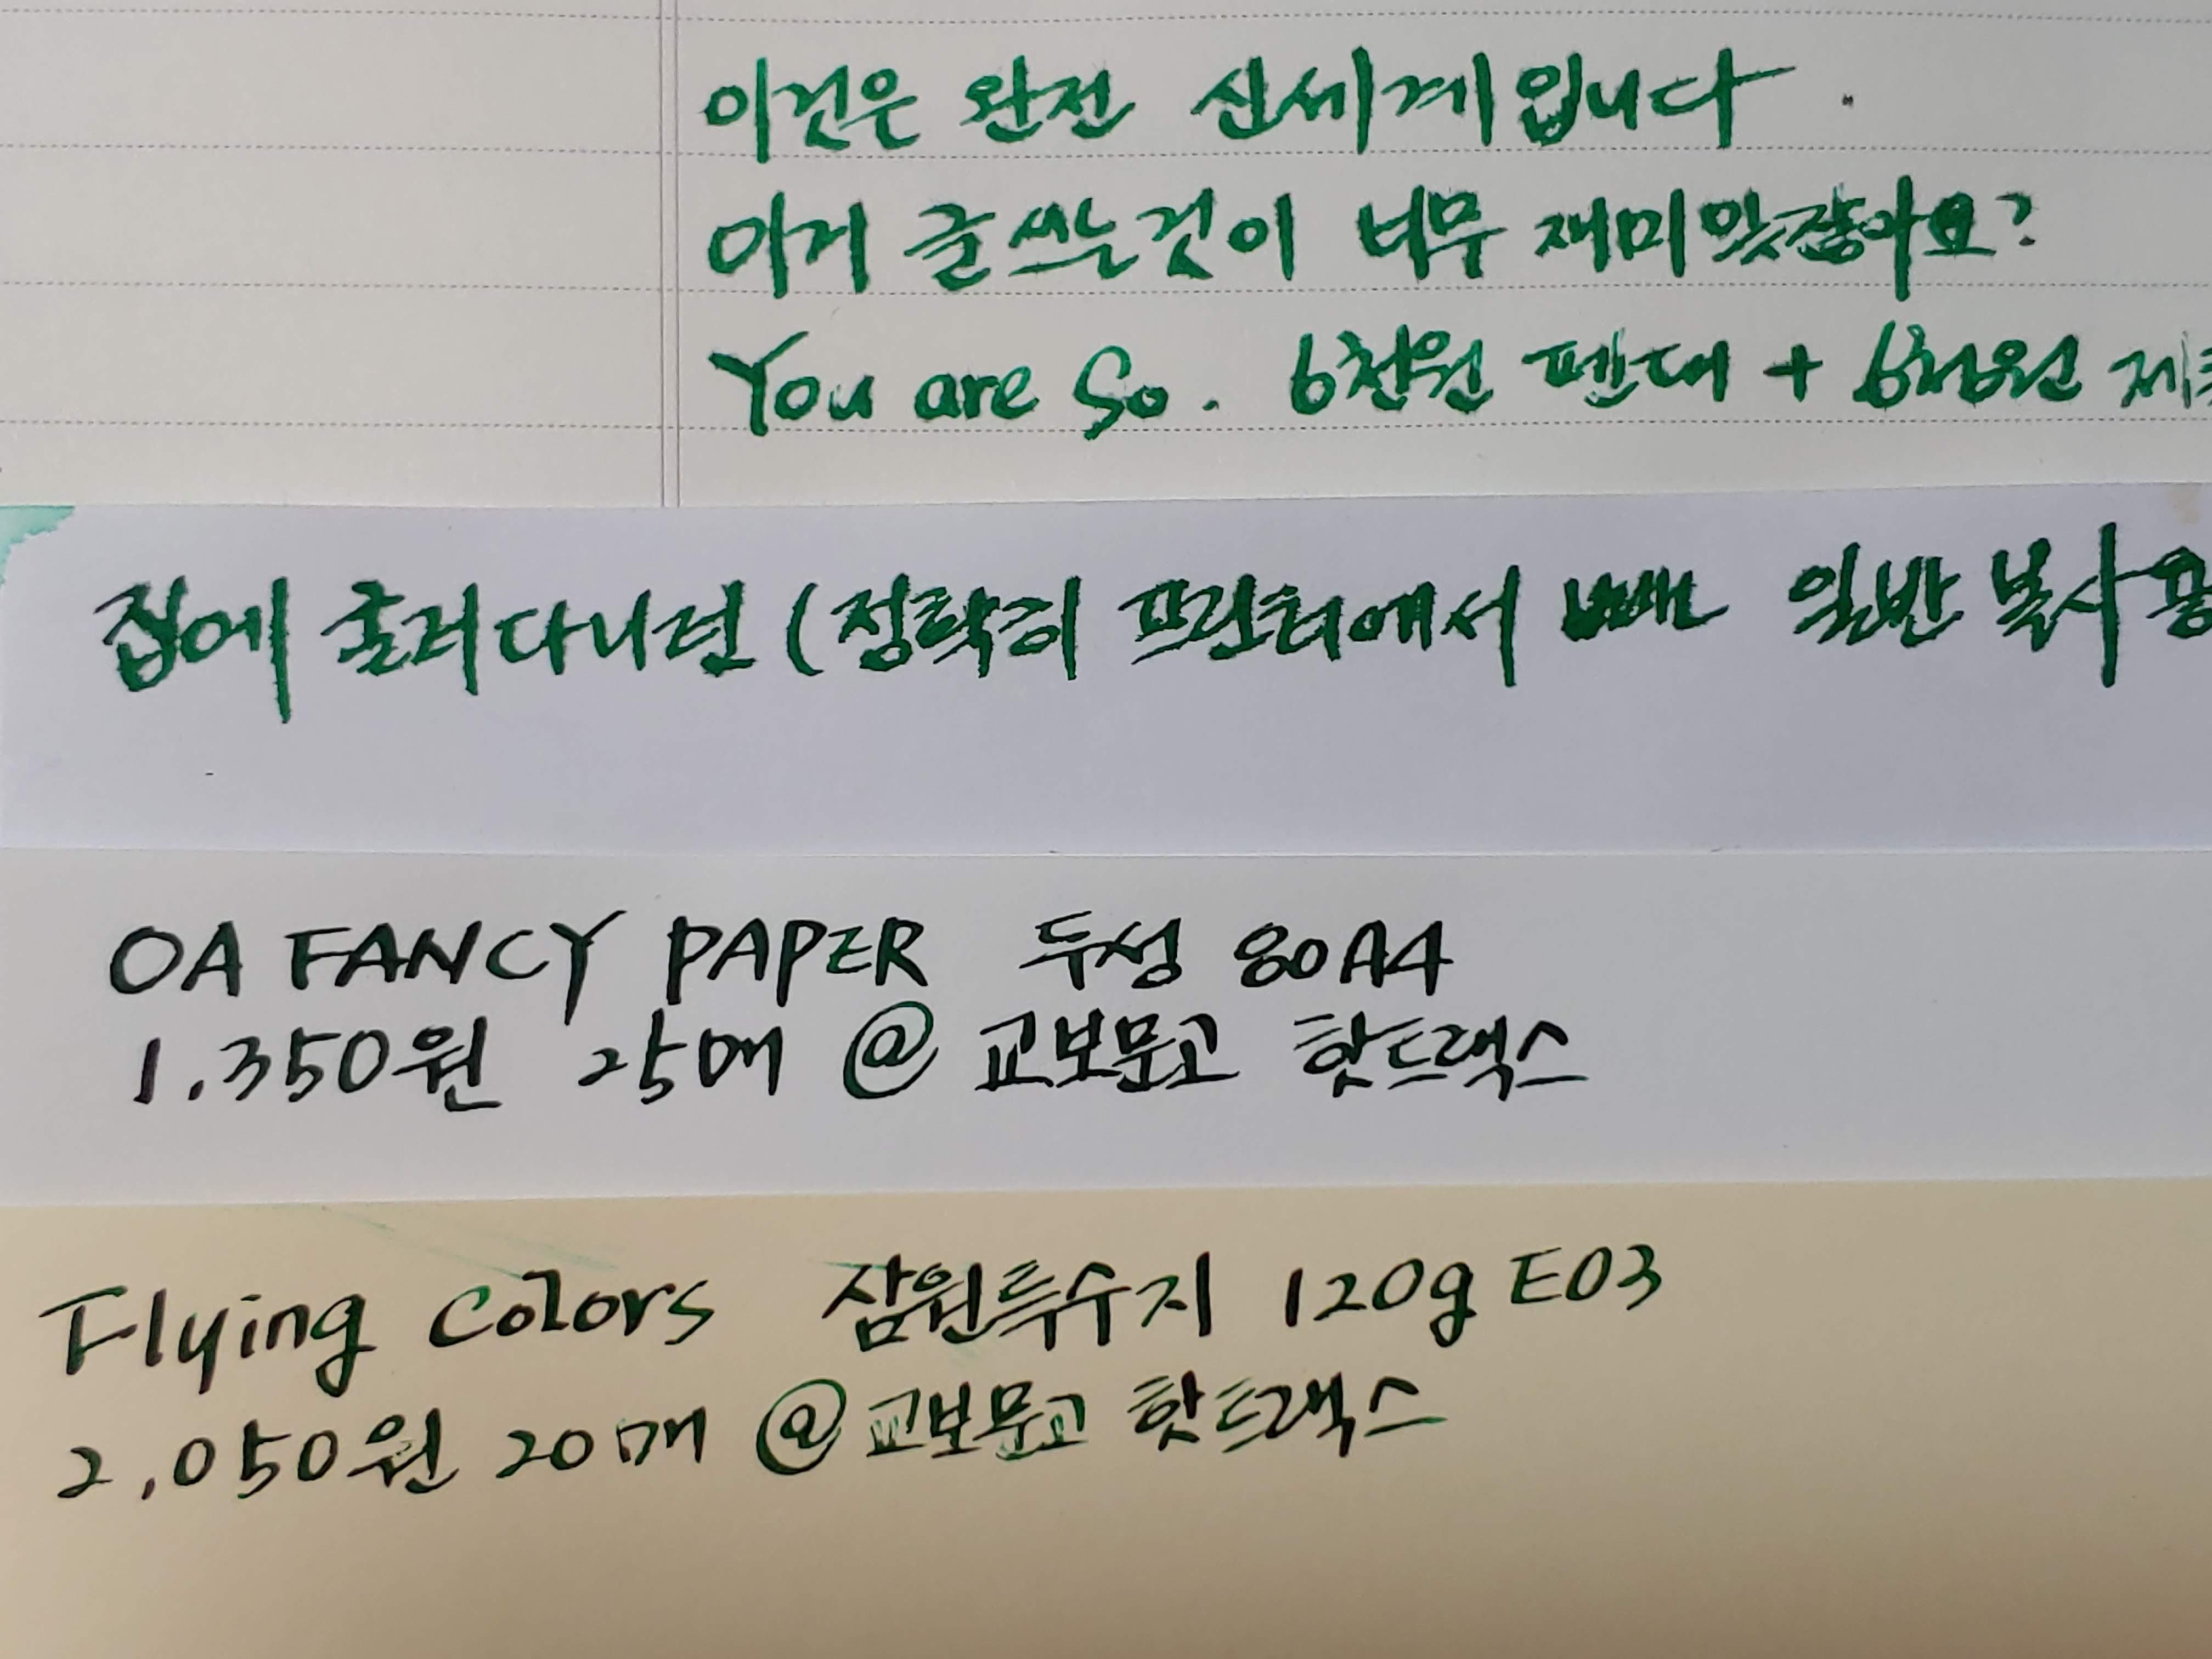 이건은 완전 신세계입니다.
이게 글 쓰는것이 너무 재미있잖아요?
You are So. 6천원 펜대 + 6천원
집에 굴러다니던 (정확히 프린터에서 빼 일반 복사용
OA FANCY PAPER 두성 80A4
1.350원 25매 @ 교보문고 핫트랙스
Flying Colors 삼원특수지 120g E03
2,050원 20매 @ 교보문고 핫트랙스